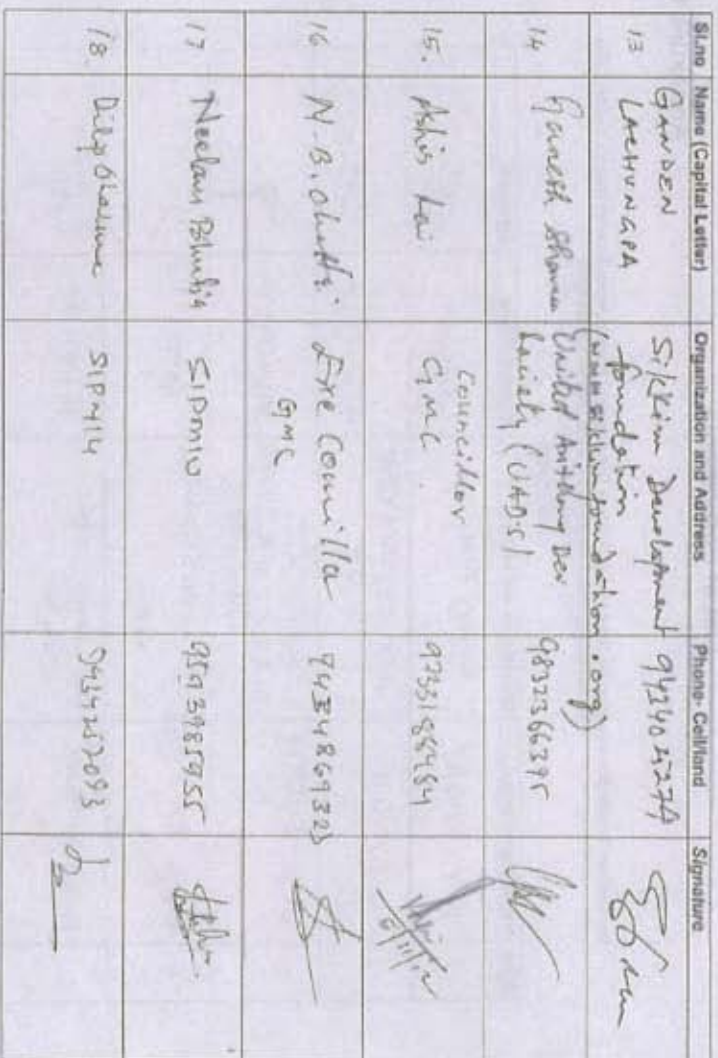 Sl.no Name (Capital Letter) Organization and Address Phone- Cell/land Signature
13 GANDEN LACHUNGPA Sikkim Development foundation (www.sikkimfoundation.org)
14 Ganesh Sharma United Anthony Dev Society (UADS) 9832366395
15. Ashis Rai Councillor GMC 9733188484
16 N.B. Chettri Exe Councillor GMC 7434869323
17 Neelam Bhutia SIPMIU 9593985955
18. Dilip Sharma SIPMIU 9434257093